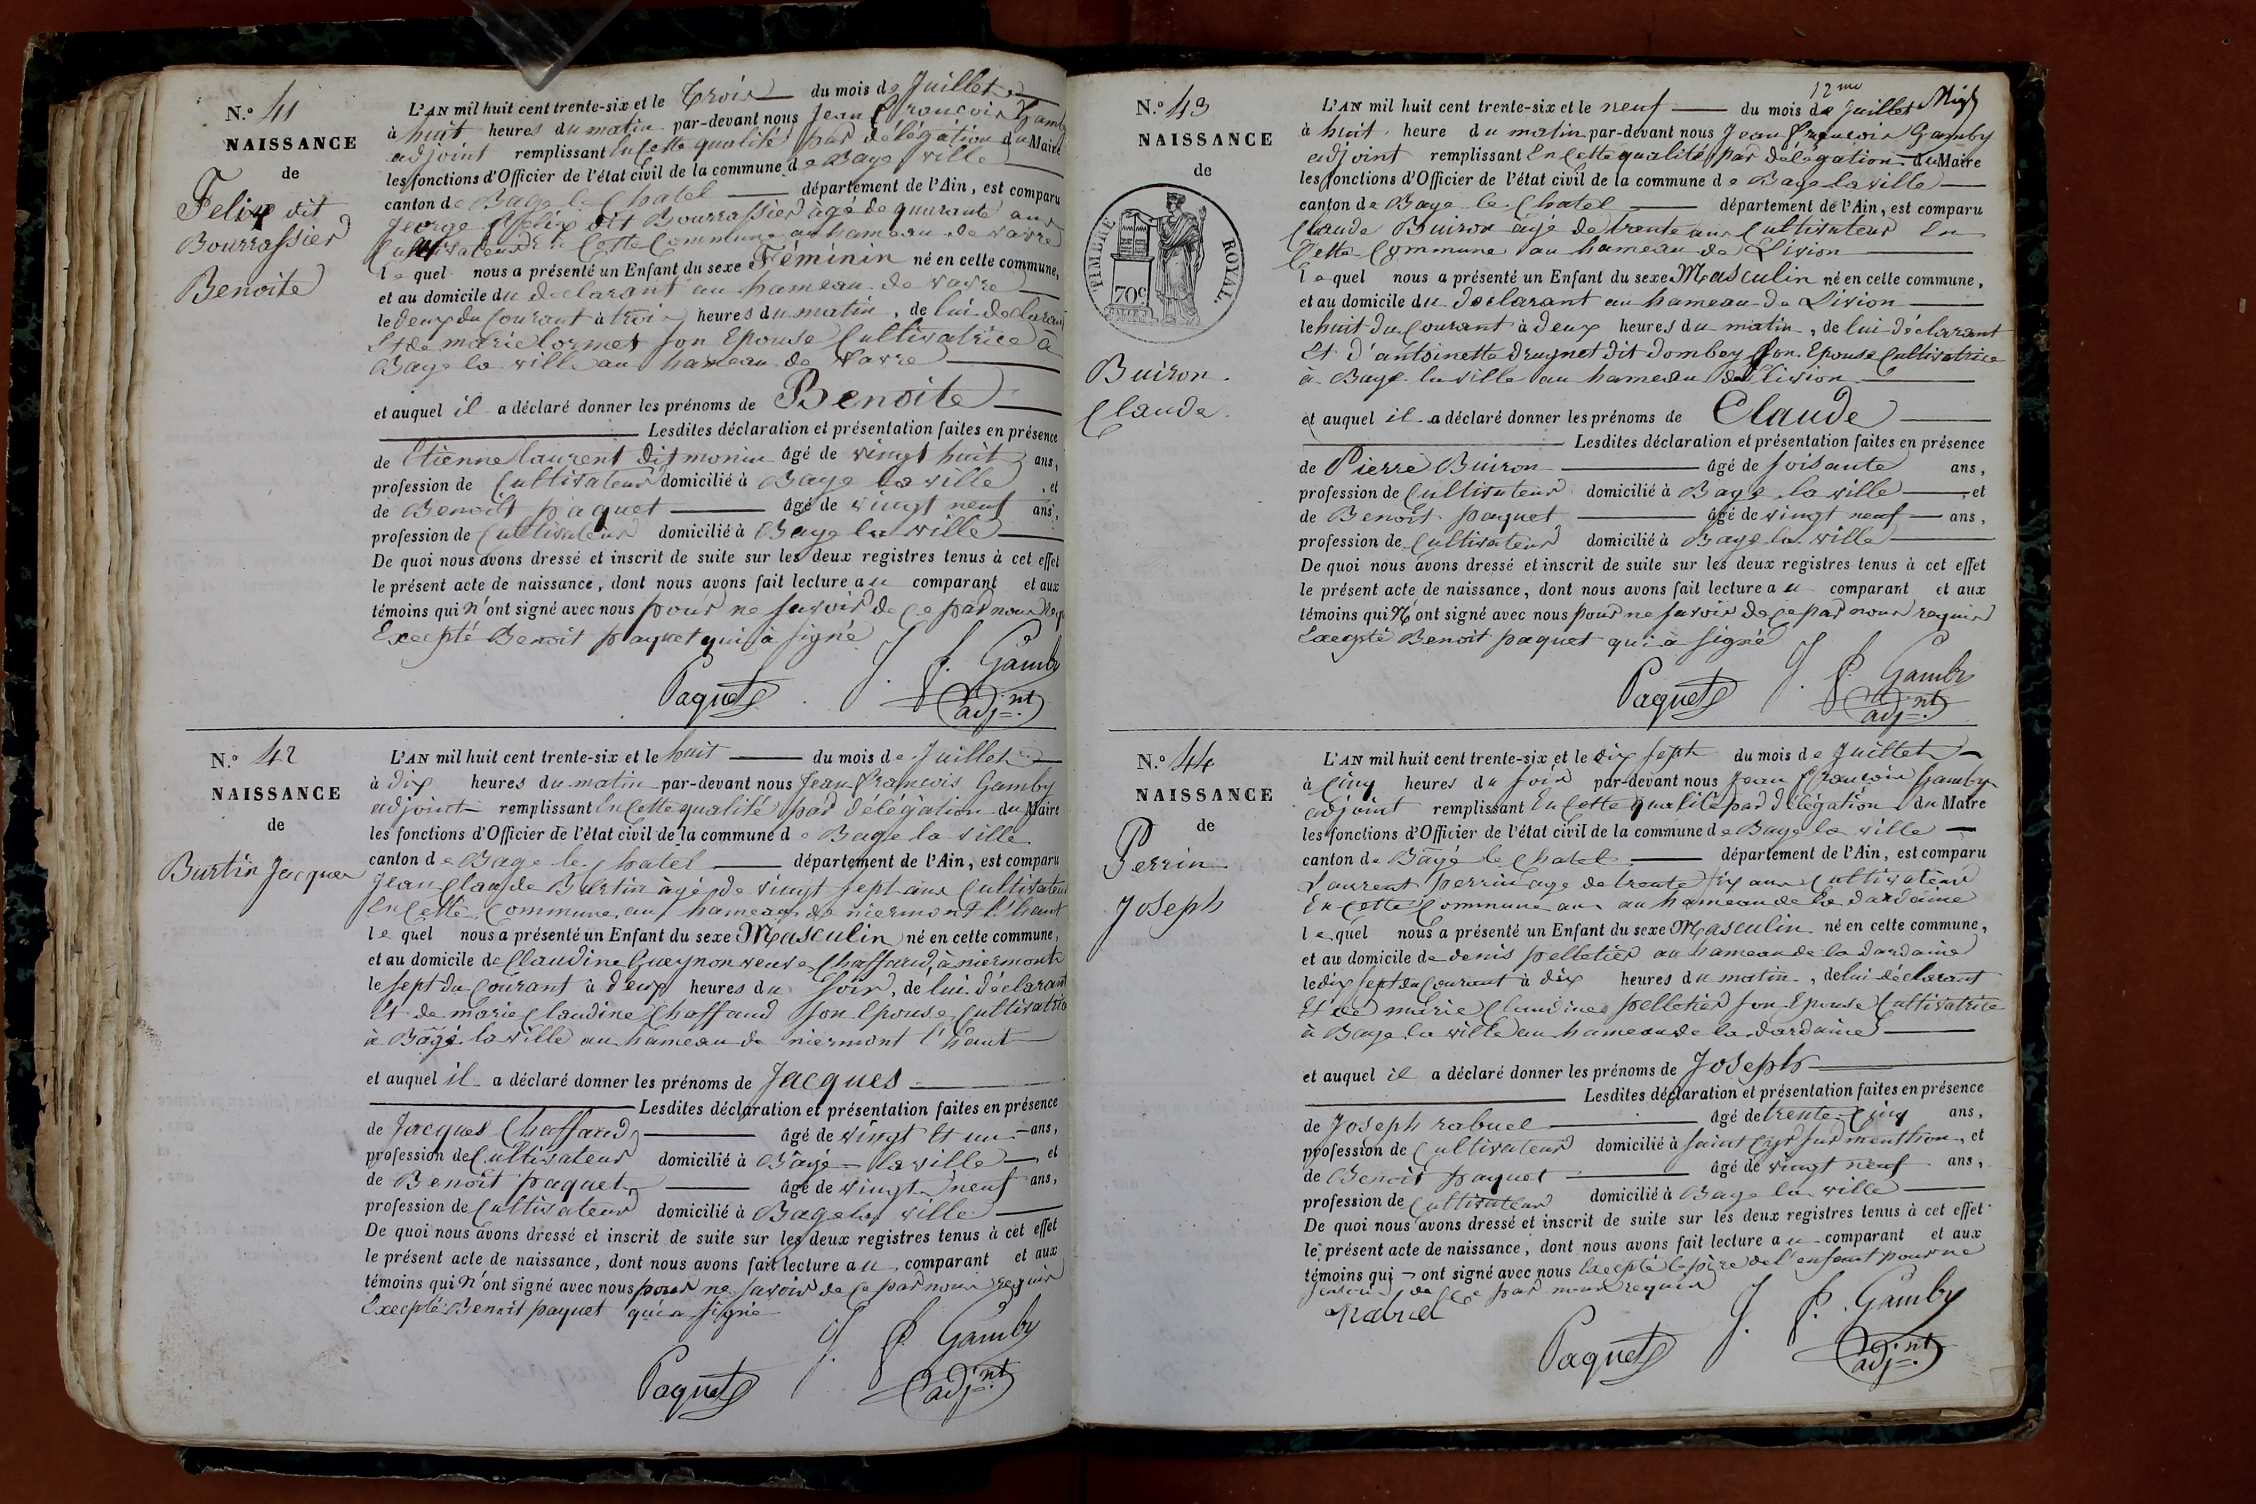 N.º 41
NAISSANCE
de
Felix dit
Bourrassier
Benoite
L'AN mil huit cent trente-six et le trois du mois de Juillet
à huit heures du matin par-devant nous Jean François Gamby
adjoint remplissant En Cette qualité par délégation du Maire
les fonctions d'Officier de l'état civil de la commune de Bage la ville
canton de Bage le Chatel département de l'Ain, est comparu
George felix dit Bourrassier âgé de quarante ans
Cultivateur de Cette Commune au hameau de vavre
le quel nous a présenté un Enfant du sexe Féminin né en cette commune,
et au domicile du declarant au hameau de vavre
le deux du Courant à trois heures du matin, de lui declarant
Et de marie lormet son Epouse Cultivatrice à
Bage la ville au hameau de vavre
et auquel il a déclaré donner les prénoms de Benoite
Lesdites déclaration et présentation faites en présence
de Etienne laurent dit monin âgé de vingt huit ans,
profession de Cultivateur domicilié à Bage la ville , et
de Benoit paquet âgé de vingt neuf ans,
profession de Cultivateur domicilié à Bage la ville
De quoi nous avons dressé et inscrit de suite sur les deux registres tenus à cet effet
le présent acte de naissance, dont nous avons fait lecture au comparant et aux
témoins qui n'ont signé avec nous pour ne savoir de Ce par nous Req
Excepté Benoit paquet qui à signé
Paquet J. f. Gamby
adj.nt
N.º 42
NAISSANCE
de
Burtin Jacques
L'AN mil huit cent trente-six et le huit du mois de Juillet
à dix heures du matin par-devant nous Jean François Gamby
adjoint remplissant En Cette qualité par délégation du Maire
les fonctions d'Officier de l'état civil de la commune de Bage la ville
canton de Bage le Chatel département de l'Ain, est comparu
Jean Claude Burtin âgé de vingt sept ans Cultivateur
En Cette Commune au hameau de niermont l'haut
le quel nous a présenté un Enfant du sexe Masculin né en cette commune,
et au domicile de Claudine Gueynon veuve Chaffaud, à niermont
le sept du Courant à deux heures du soir, de lui déclarant
Et de marie Claudine Chaffaud son Epouse Cultivatrice
à Bâgé la ville au hameau de niermont l'haut
et auquel il a déclaré donner les prénoms de Jacques
Lesdites déclaration et présentation faites en présence
de Jacques Chaffaud âgé de vingt Et un ans,
profession de Cultivateur domicilié à Bâgé la ville , et
de Benoit paquet âgé de vingt neuf ans,
profession de Cultivateur domicilié à Bage la ville
De quoi nous avons dressé et inscrit de suite sur les deux registres tenus à cet effet
le présent acte de naissance, dont nous avons fait lecture au comparant et aux
témoins qui n'ont signé avec nous pour ne savoir de Ce par nous requis
Excepté Benoit paquet qui a signé
Paquet J. f. Gamby
adj.nt
12me
N.º 43
NAISSANCE
de
TIMBRE ROYAL.
70c.
Buiron
Claude
L'AN mil huit cent trente-six et le neuf du mois de Juillet
à huit heure du matin par-devant nous Jean François Gamby
adjoint remplissant En Cette qualité par délégation du Maire
les fonctions d'Officier de l'état civil de la commune de Bage la ville
canton de Bage le Chatel département de l'Ain, est comparu
Claude Buiron âgé de trente ans Cultivateur En
Cette Commune au hameau de Livion
le quel nous a présenté un Enfant du sexe Masculin né en cette commune,
et au domicile du declarant au hameau de Livion
le huit du Courant à deux heures du matin, de lui déclarant
Et d'antoinette druynet dit dombey son Epouse Cultivatrice
à Bage la ville au hameau de Livion
et auquel il a déclaré donner les prénoms de Claude
Lesdites déclaration et présentation faites en présence
de Pierre Buiron âgé de soisante ans,
profession de Cultivateur domicilié à Bagé la ville , et
de Benoit paquet âgé de vingt neuf ans,
profession de Cultivateur domicilié à Bagé la ville
De quoi nous avons dressé et inscrit de suite sur les deux registres tenus à cet effet
le présent acte de naissance, dont nous avons fait lecture au comparant et aux
témoins qui N'ont signé avec nous pour ne savoir de Ce par nous requis
Excepté Benoit paquet qui à signé
Paquet J. f. Gamby
adj.nt
N.º 44
NAISSANCE
de
Perrin
Joseph
L'AN mil huit cent trente-six et le dix sept du mois de Juillet
à Cinq heures du soir par-devant nous Jean François Gamby
adjoint remplissant En Cette qualité par délégation du Maire
les fonctions d'Officier de l'état civil de la commune de Bage la ville
canton de Bâgé le Chatel département de l'Ain, est comparu
Laurent perrin âge de trente six ans Cultivateur
En Cette Commune au au hameau de la dardaine
le quel nous a présenté un Enfant du sexe Masculin né en cette commune,
et au domicile de denis pelletier au hameau de la dardaine
le dix sept du Courant à dix heures du matin, de lui déclarant
Et de marie Claudine pelletier son Epouse Cultivatrice
à Bage la ville au hameau de la dardaine
et auquel il a déclaré donner les prénoms de Joseph
Lesdites déclaration et présentation faites en présence
de Joseph rabuel âgé de trente Cinq ans,
profession de Cultivateur domicilié à saint Cyr sur menthon , et
de Benoit paquet âgé de vingt neuf ans,
profession de Cultivateur domicilié à Bage la ville
De quoi nous avons dressé et inscrit de suite sur les deux registres tenus à cet effet
le présent acte de naissance, dont nous avons fait lecture au comparant et aux
témoins qui ont signé avec nous Excepté le père de l'enfant pour ne
savoir de Ce par nous requis
Rabuel Paquet J. f. Gamby
adj.nt